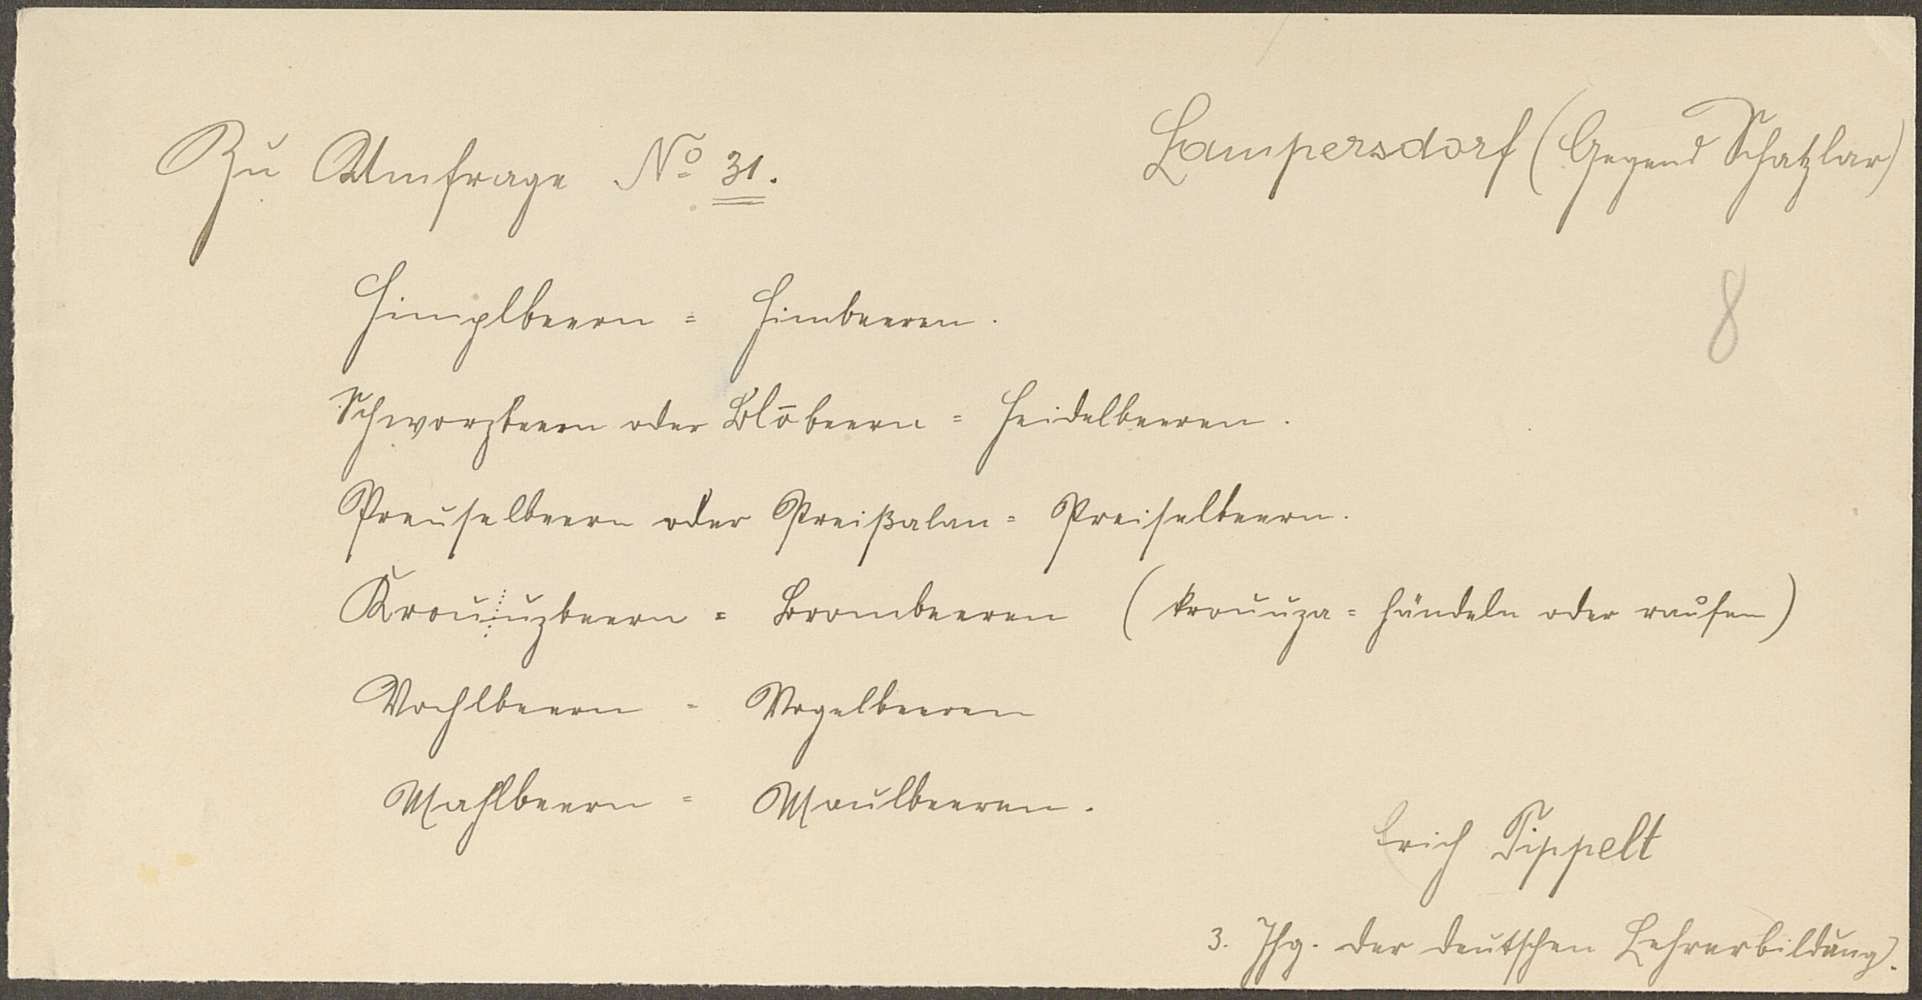 Zu Umfrage No 31.
Lampersdorf (Gegend Schatzlar)
8
Himplbeern = Himbeeren.
Schworzbeern oder Blōbeern = Heidelbeeren.
Preuselbeern oder Preißalan = Preiselbeern.
Krou⁞uzbeern = Brombeeren (krouuza = händeln oder raufen)
Vochlbeern = Vogelbeeren
Mahlbeern = Maulbeeren.
Erich Tippelt
3. Jhg. der deutschen Lehrerbildung.